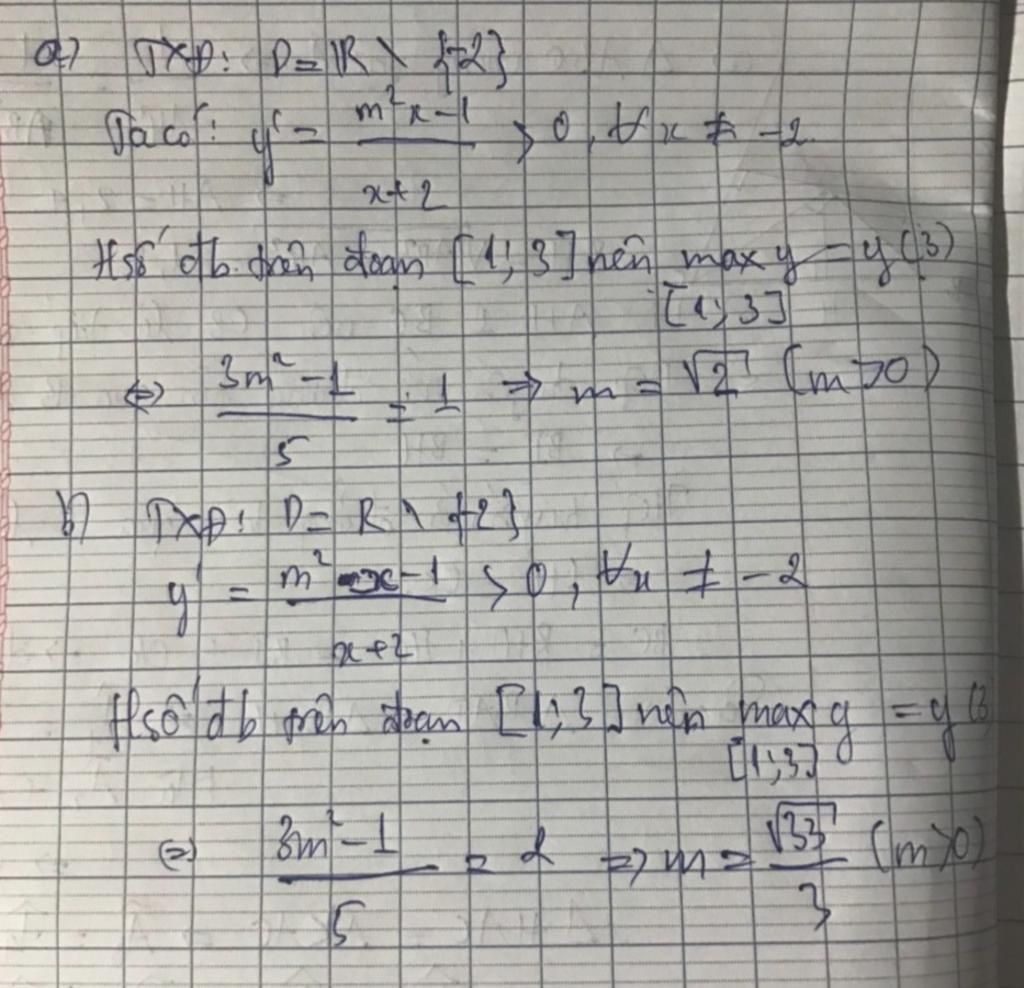 a) TXĐ: D = R \ {-2}
Ta có: y' = (m²x-1)/(x+2) > 0, ∀x ≠ -2
Hsố đb trên đoạn [1; 3] nên max y = y(3)
[1; 3]
⇔ (3m²-1)/5 = 1 ⇒ m = √2 (m>0)
b) TXĐ: D = R \ {-2}
y' = (m² x-1)/(x+2) > 0, ∀x ≠ -2
Hsố đb trên đoạn [1; 3] nên max y = y(3
[1; 3]
(=) (3m²-1)/5 = 2 ⇒ m = √33/3 (m>0)